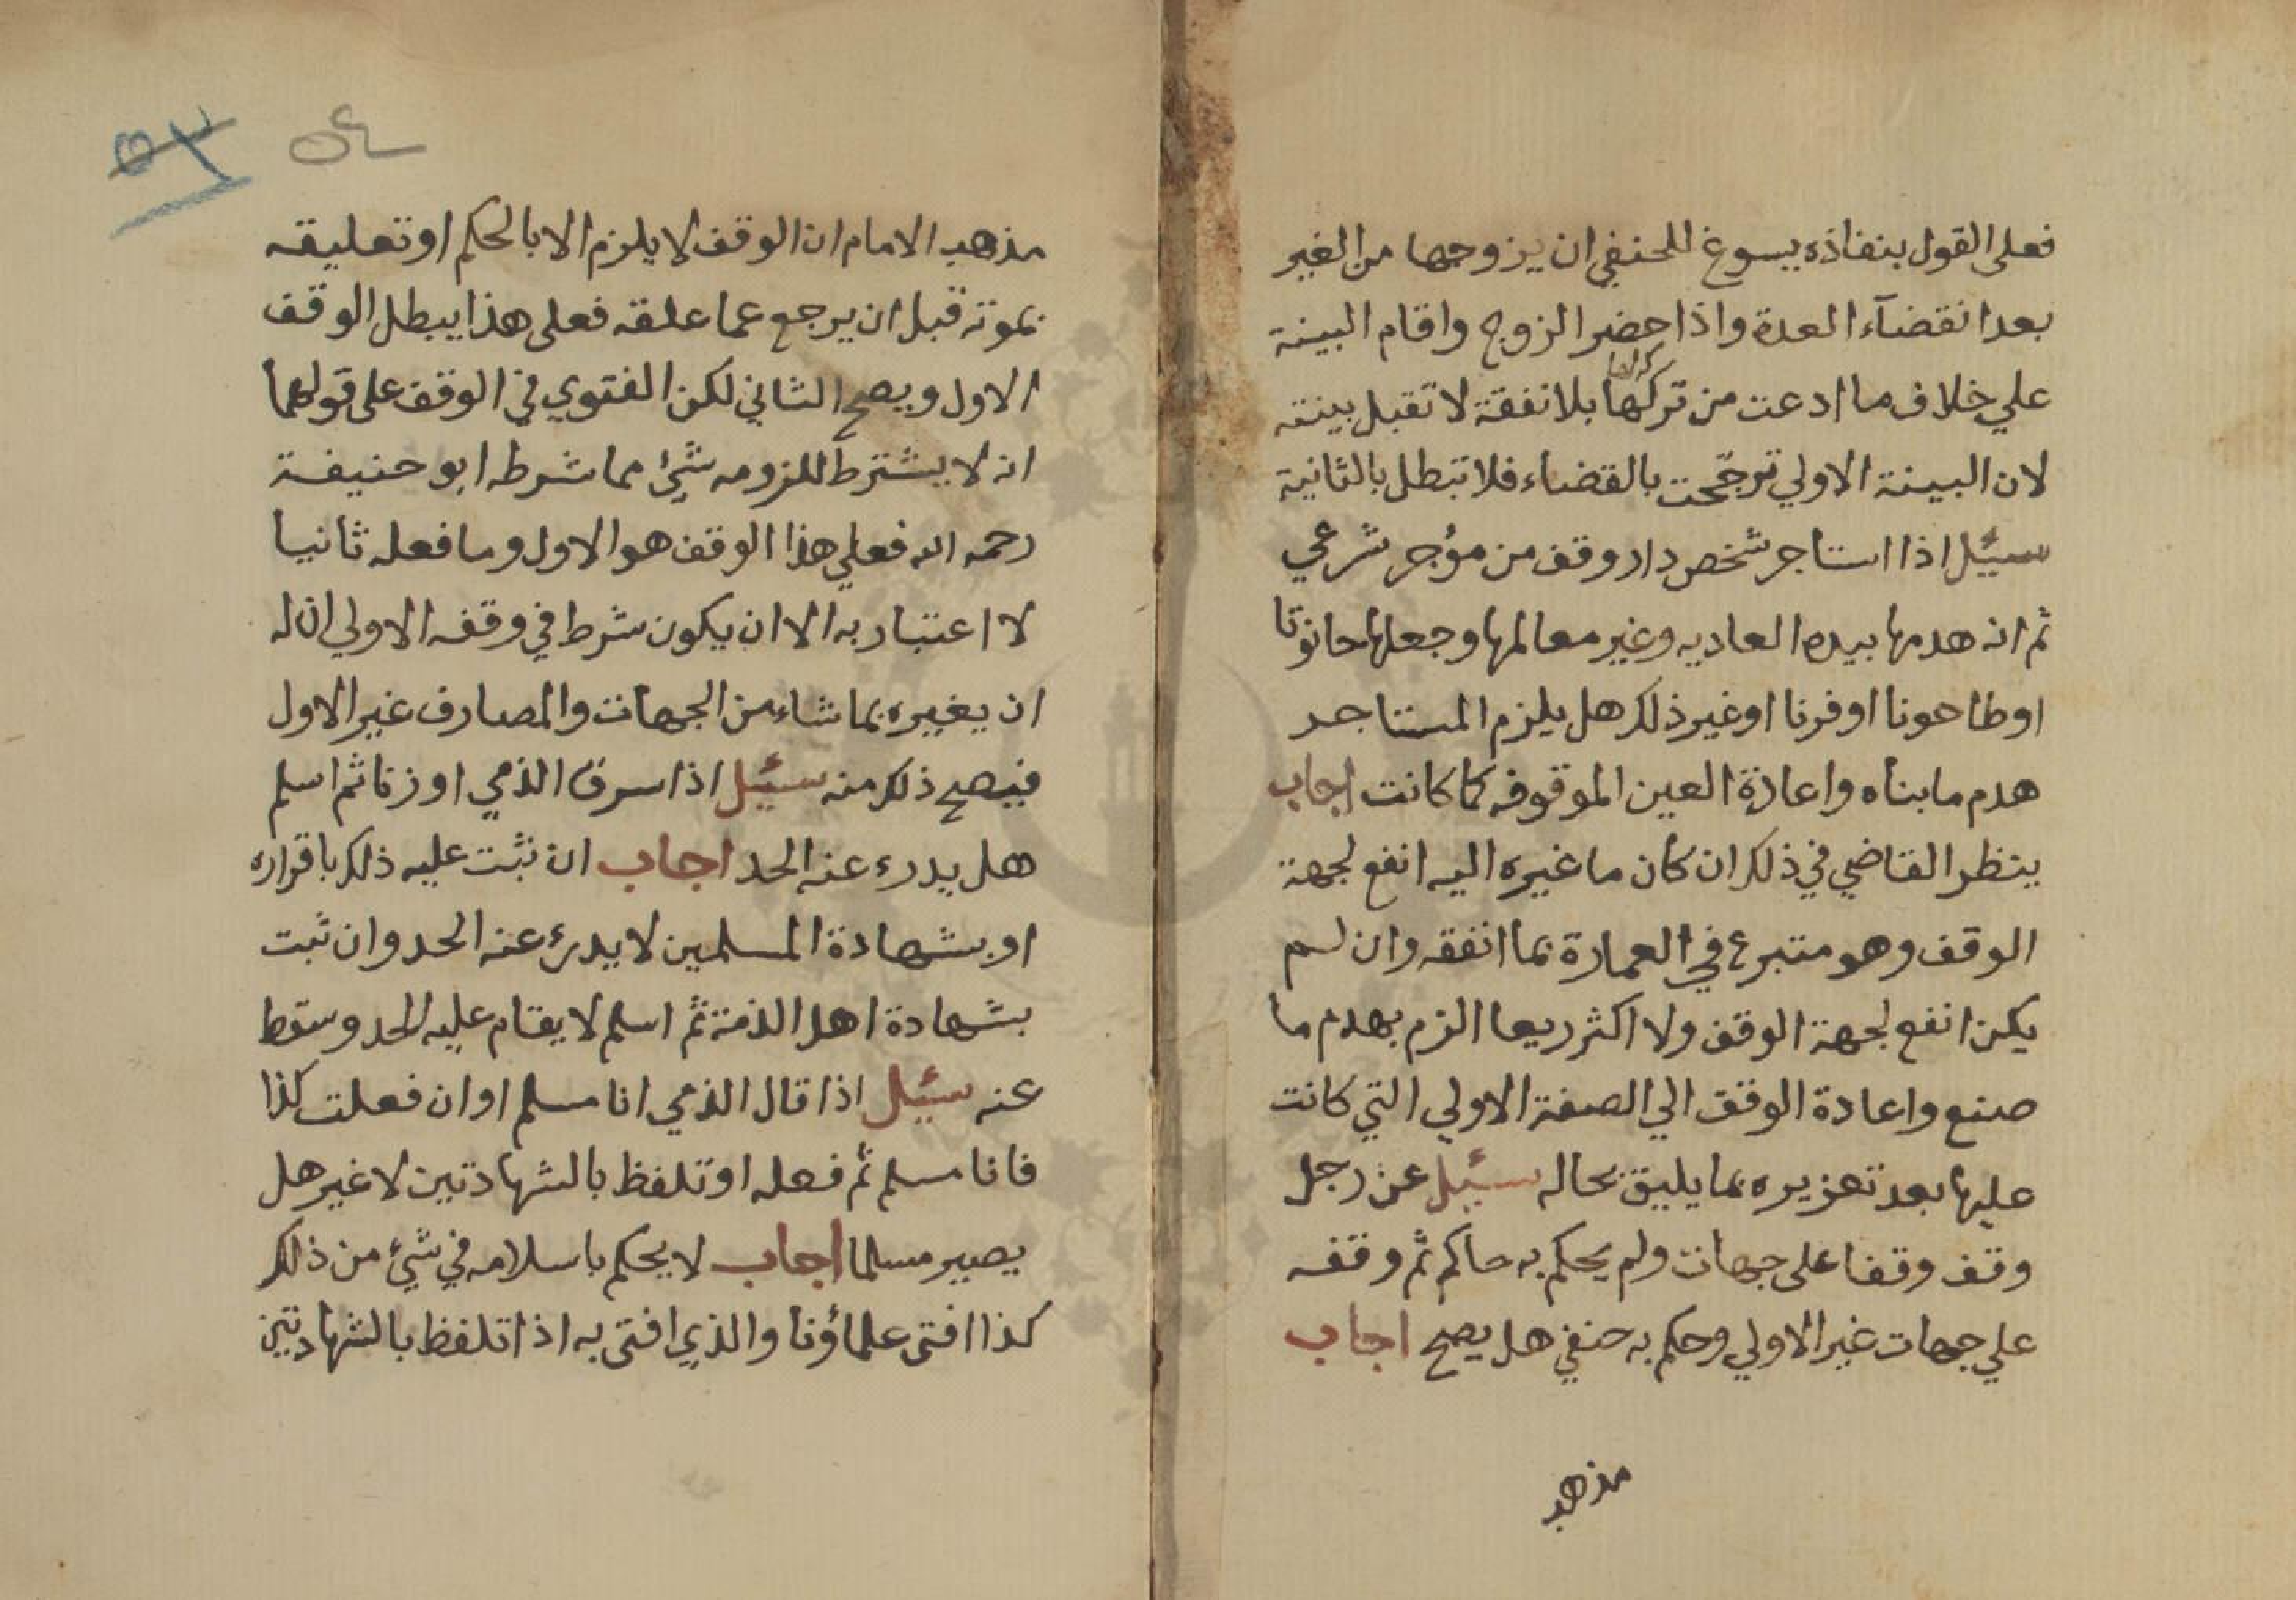 فعلى القول بنفاذه يسوغ للحنفي ان يزوجها من الغير
بعد انقضآء العدة واذا حضر الزوج واقام البينة
علي خلاف ما ادعت من تركها بلا نفقة لا تقبل بينته
لان البينة الاولي ترجّحت بالقضاء فلا تبطل بالثانية
سئل اذا استاجر شخص دار وقف من مؤجر شرعي
ثم انه هدمها بيده العاديه وغير معالمها وجعلها حانوتا
او طاحونا او فرنا او غير ذلك هل يلزم المستاجر
هدم ما بناه واعادة العين الموقوفه كما كانت اجاب
ينظر القاضي في ذلك ان كان ما غيره اليه انفع لجهة
الوقف وهو متبرع في العمارة بما انفقه وان لم
يكن انفع لجهة الوقف ولا اكثر ريعا الزم بهدم ما
صنع واعادة الوقف الي الصفة الاولي التي كانت
عليها بعد تعزيره بما يليق بحاله سئل عن رجل
وقف وقفا على جهات ولم يحكم به حاكم ثم وقفه
علي جهات غير الاولي وحكم به حنفي هل يصح اجاب
مذهب
٥٤
٥٣
مذهب الامام ان الوقف لا يلزم الا بالحكم او تعليقه
بموته قبل ان يرجع عما علقه فعلى هذا يبطل الوقف
الاول ويصح الثاني لكن الفتوي في الوقف على قولهما
انه لا يشترط للزومه شئ مما شرطه ابو حنيفة
رحمه الله فعلي هذا الوقف هو الاول وما فعله ثانيا
لا اعتبار به الا ان يكون شرط في وقفه الاولي ان له
ان يغيره بما شاء من الجهات والمصارف غير الاول
فيصح ذلك منه سئل اذا سرق الذمي او زنا ثم اسلم
هل يدرء عنه الحد اجاب ان ثبت عليه ذلك باقراره
او بشهادة المسلمين لا يدرء عنه الحد وان ثبت
بشهادة اهل الذمة ثم اسلم لا يقام عليه الحد وسقط
عنه سئل اذا قال الذمي انا مسلم او ان فعلت كذا
فانا مسلم ثم فعله او تلفظ بالشهادتين لا غير هل
يصير مسلما اجاب لا يحكم باسلامه في شئ من ذلك
كذا افتى علماؤنا والذي افتى به اذا تلفظ بالشهادتين